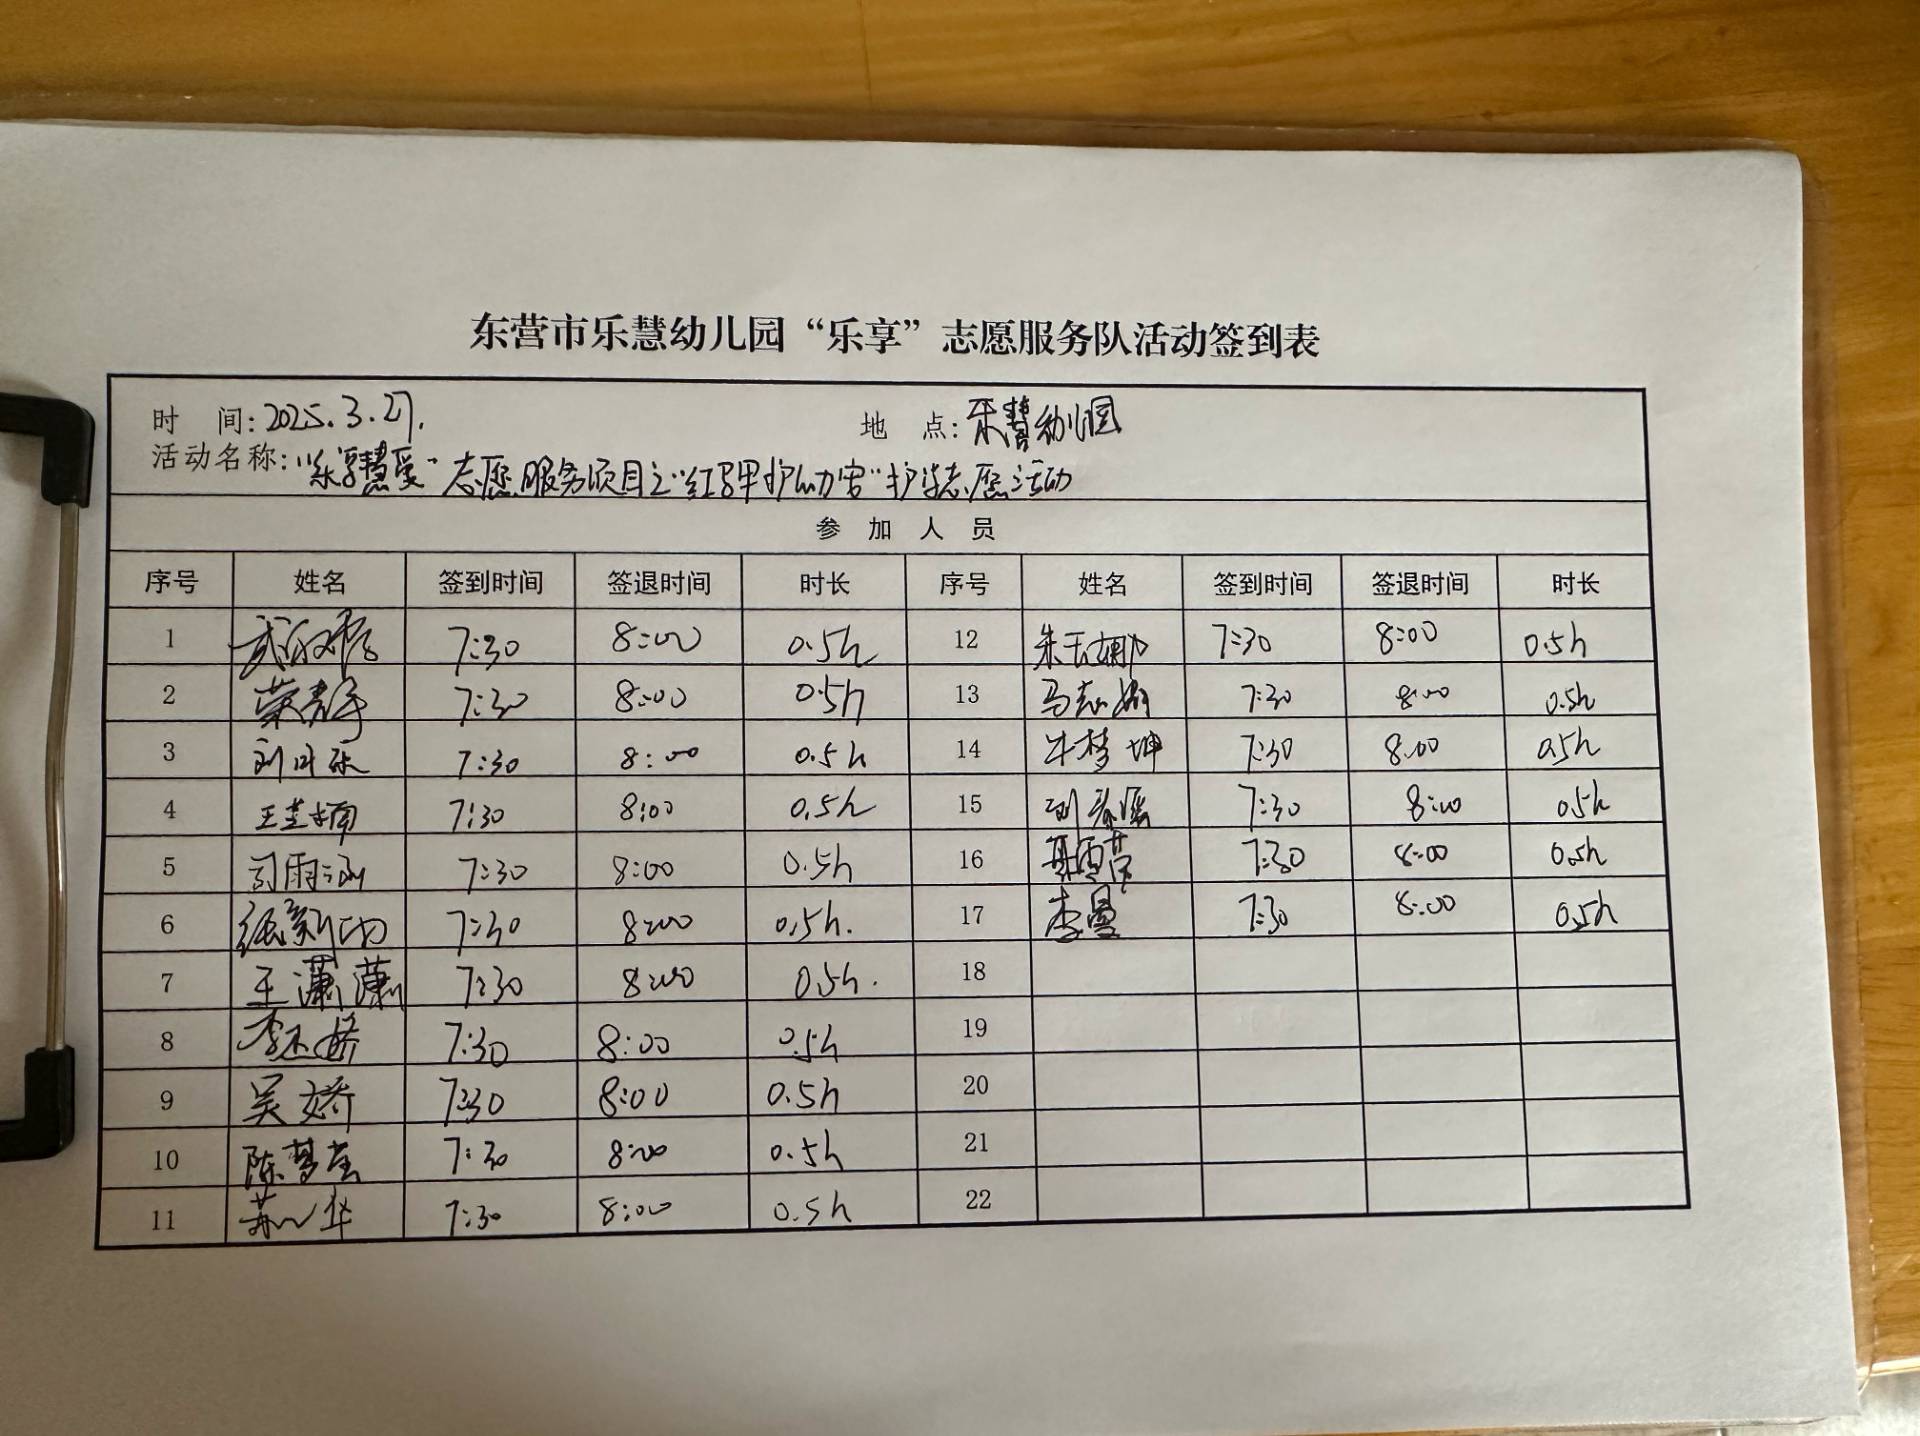 东营市乐慧幼儿园“乐享”志愿服务队活动签到表
时 间: 2025.3.27. 地 点: 乐慧幼儿园
活动名称: “乐享慧爱”志愿服务项目之“红马甲护幼安”护学志愿活动
参 加 人 员
序号 姓名 签到时间 签退时间 时长 序号 姓名 签到时间 签退时间 时长
1 7:30 8:00 0.5h 12 朱玉娜 7:30 8:00 0.5h
2 7:30 8:00 0.5h 13 马志 7:30 8:00 0.5h
3 7:30 8:00 0.5h 14 牛梦坤 7:30 8:00 0.5h
4 7:30 8:00 0.5h 15 刘春瑶 7:30 8:00 0.5h
5 司雨涵 7:30 8:00 0.5h 16 7:30 8:00 0.5h
6 7:30 8:00 0.5h. 17 李曼 7:30 8:00 0.5h
7 王潇潇 7:30 8:00 0.5h. 18
8 7:30 8:00 0.5h 19
9 吴娇 7:30 8:00 0.5h 20
10 陈梦莹 7:30 8:00 0.5h 21
11 7:30 8:00 0.5h 22